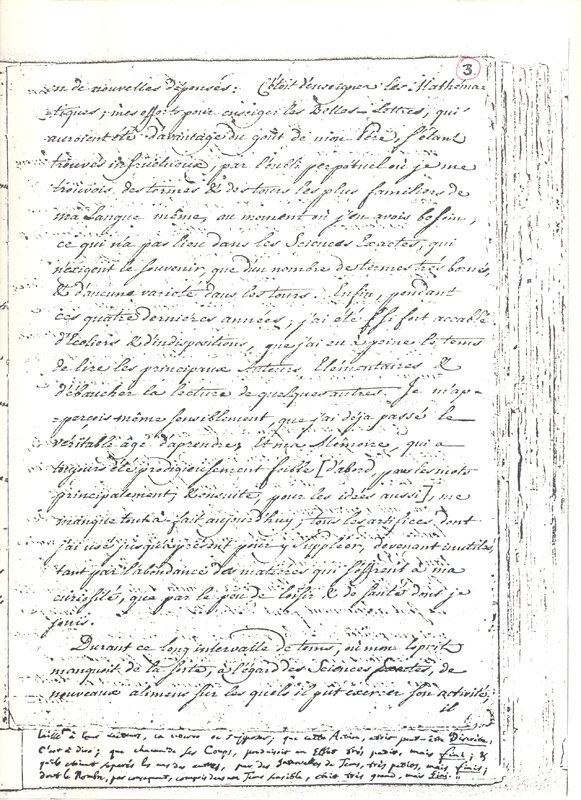 3
en de nouvelles dépenses: C'étoit d'enseigner les Mathéma-
tiques; mes efforts pour enseigner les Belles-Lettres, qui
auroient été d'avantage du goût de mon Père, s'étant
trouvés infructueux, par l'oubli perpétuel où je me
trouvois des termes & des tours les plus familiers de
ma Langue même, au moment où j'en avois besoin,
ce qui n'a pas lieu dans les Sciences Exactes, qui
n'exigent le souvenir, que d'un nombre de termes très bornés,
& d'aucune varieté dans les tours. Enfin, pendant
ces quatre dernieres années, j'ai été si fort accablé
d'Ecoliers & d'indispositions, que j'ai eu à peine le tems
de lire les principaux Auteurs Elémentaires &
d'ébaucher la lecture de quelques autres. Je m'ap-
-perçois même sensiblement, que j'ai déja passé le
véritable âge d'aprendre; Et ma Mémoire, qui a
toujours été prodigieusement foible [d'abord, pour les mots
principalement; & ensuite, pour les idées aussi], me
manque tout à fait aujourdhuy; tous les artifices dont
j'ai usé jusqu'à présent pour y suppléer, devenant inutiles,
tant par l'abondance des matieres qui s'offrent à ma
curiosité, que par le peu de loisir & de santé dont je
jouis.
Durant ce long intervalle de tems, où mon Esprit
manquoit de la sorte, à l'égard des Sciences Exactes, de
nouveaux alimens sur les quels il pût exercer son activité,
il
à leur, ou à supposer, que cette Action, étoit peut-être Discrète,
C'est à dire; que chacun de ses Coups, produisoit un Effet très petit, mais fini; &
qu'ils étoient séparés les uns des autres, par des Intervalles de Tems, très petits, mais finis;
dont le Nombre, par consequent, compris dans un Tems sensible, étoit très grand, mais Fini.